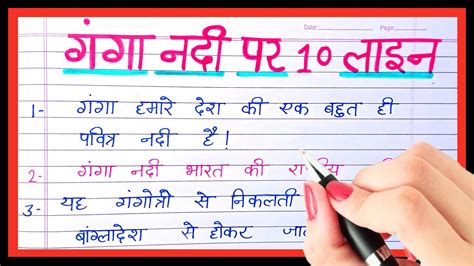 Date: Page:
गंगा नदी पर 10 लाइन
1- गंगा हमारे देश की एक बहुत ही
पवित्र नदी है!
2- गंगा नदी भारत की
3- यह गंगोत्री से निकलती
बांग्लादेश से होकर